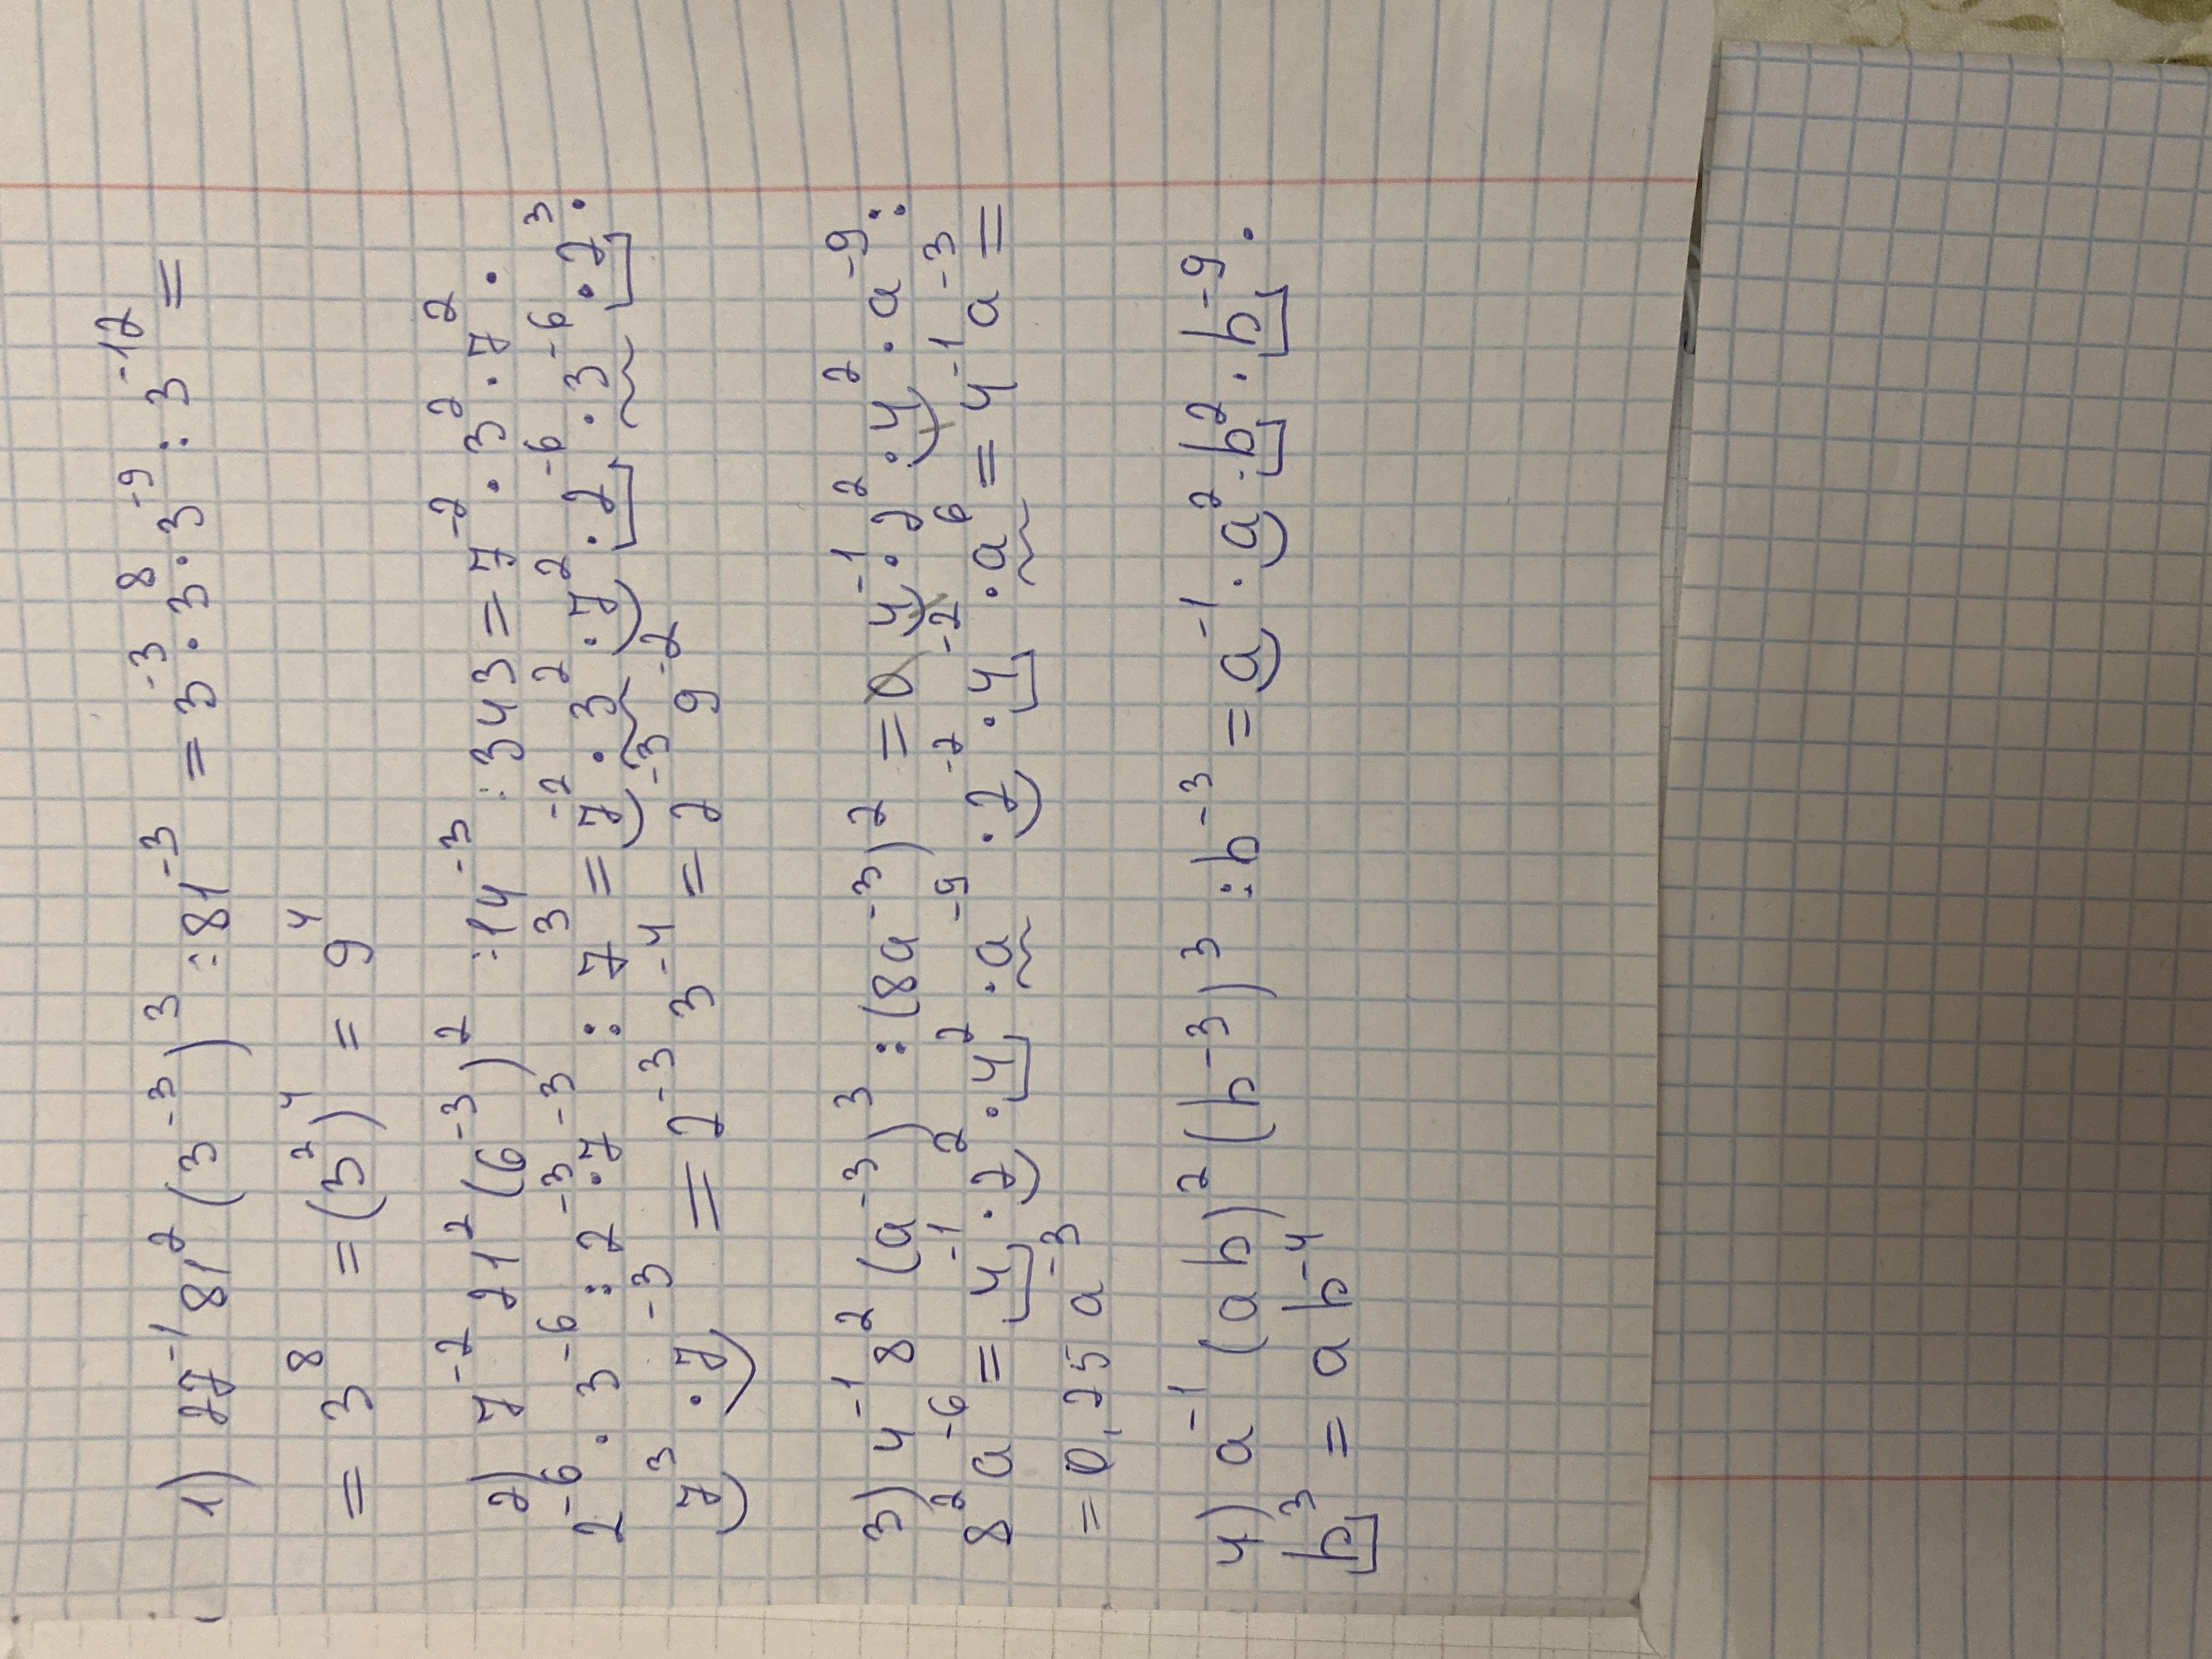 1) 27⁻¹ 81² (3⁻³)³ : 81⁻³ = 3⁻³ · 3⁸ · 3⁻⁹ : 3⁻¹² =
= 3⁸ = (3²)⁴ = 9⁴
2) 7⁻² 21² (6⁻³)² : 14⁻³ : 343 = 7⁻² · 3² · 7² ·
2⁻⁶ · 3⁻⁶ : 2⁻³ · 7⁻³ : 7³ = 7⁻² · 3² · 7² · 2⁻⁶ · 3⁻⁶ · 2³ ·
7³ · 7⁻³ = 2⁻³ 3⁻⁴ = 2⁻³ 9⁻²
3) 4⁻¹ 8² (a⁻³)³ : (8a⁻³)² = 4⁻¹ · 2² · 4² · a⁻⁹ :
8² a⁻⁶ = 4⁻¹ · 2² · 4² · a⁻⁹ · 2⁻² · 4⁻² · a⁶ = 4⁻¹ a⁻³ =
= 0,25 a⁻³
4) a⁻¹ (ab)² (b⁻³)³ : b⁻³ = a⁻¹ · a² · b² · b⁻⁹ ·
b³ = a b⁻⁴